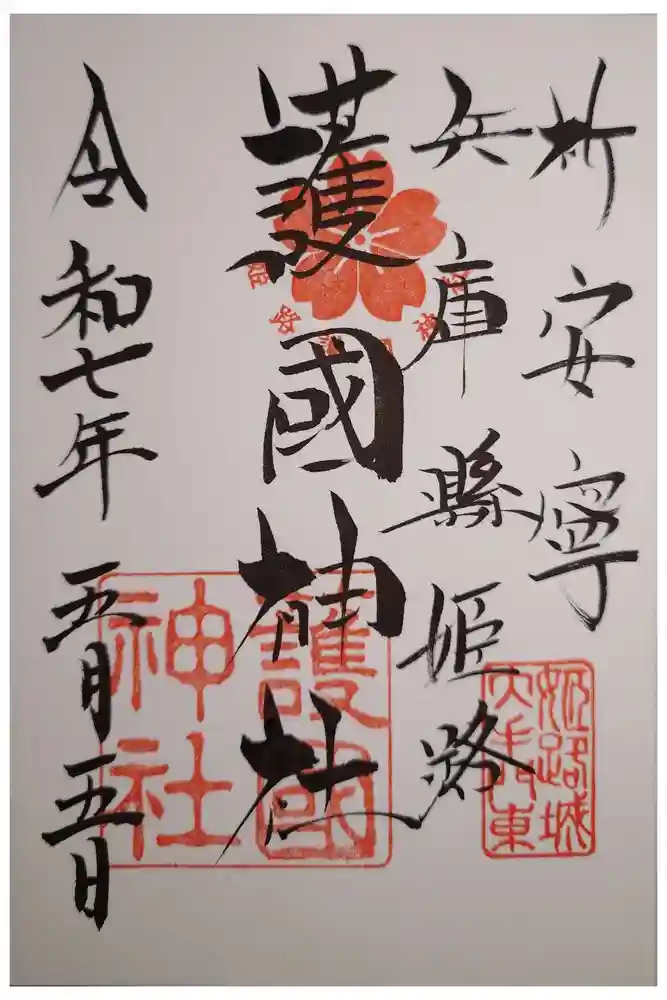 祈安寧
兵庫縣姫路
護國神社
令和七年五月五日
護國
神社
姫路城
大手東